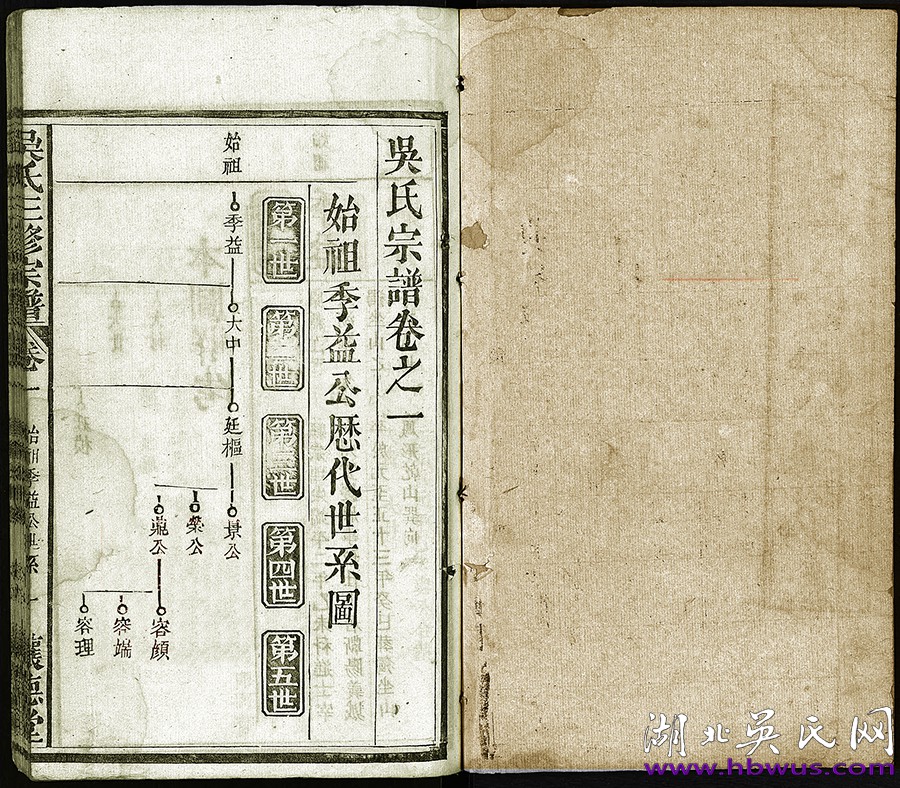 吳氏宗譜卷之一
始祖季益公歷代世系圖
第一世
第二世
第三世
第四世
第五世
始祖
季益
大中
廷樞
景公
榮公
鼎公
容顏
容端
容理
吳氏三修宗譜
卷一
始祖季益公世系
一
湖北吴氏网
www.hbwus.com